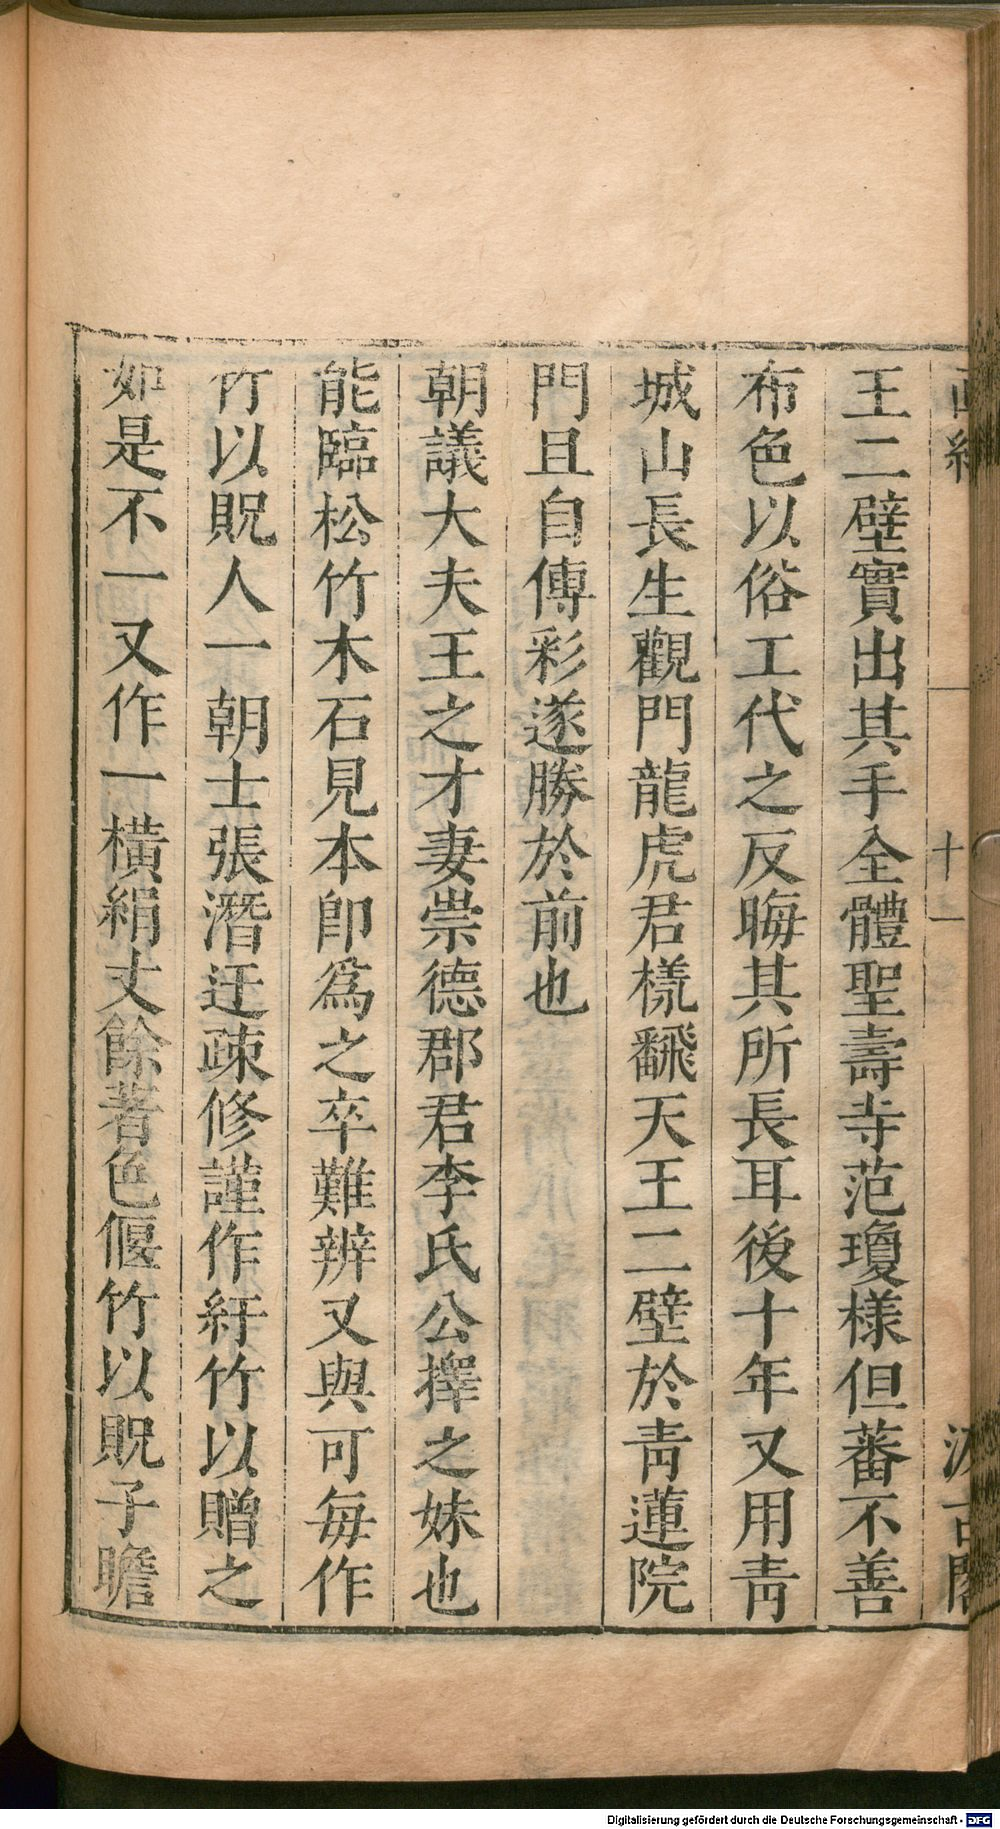 王二壁實出其手全體聖壽寺范瓊樣但蕃不善
布色以俗工代之反晦其所長耳後十年又用青
城山長生觀門龍虎君樣飜天王二壁於青蓮院
門且自傳彩遂勝於前也
朝議大夫王之才妻崇德郡君李氏公擇之妹也
能臨松竹木石見本卽爲之卒難辨又與可每作
竹以貺人一朝士張潛迂疎修謹作紆竹以贈之
如是不一又作一橫絹丈餘著色偃竹以貺子瞻
十一
Digitalisierung gefördert durch die Deutsche Forschungsgemeinschaft - DFG